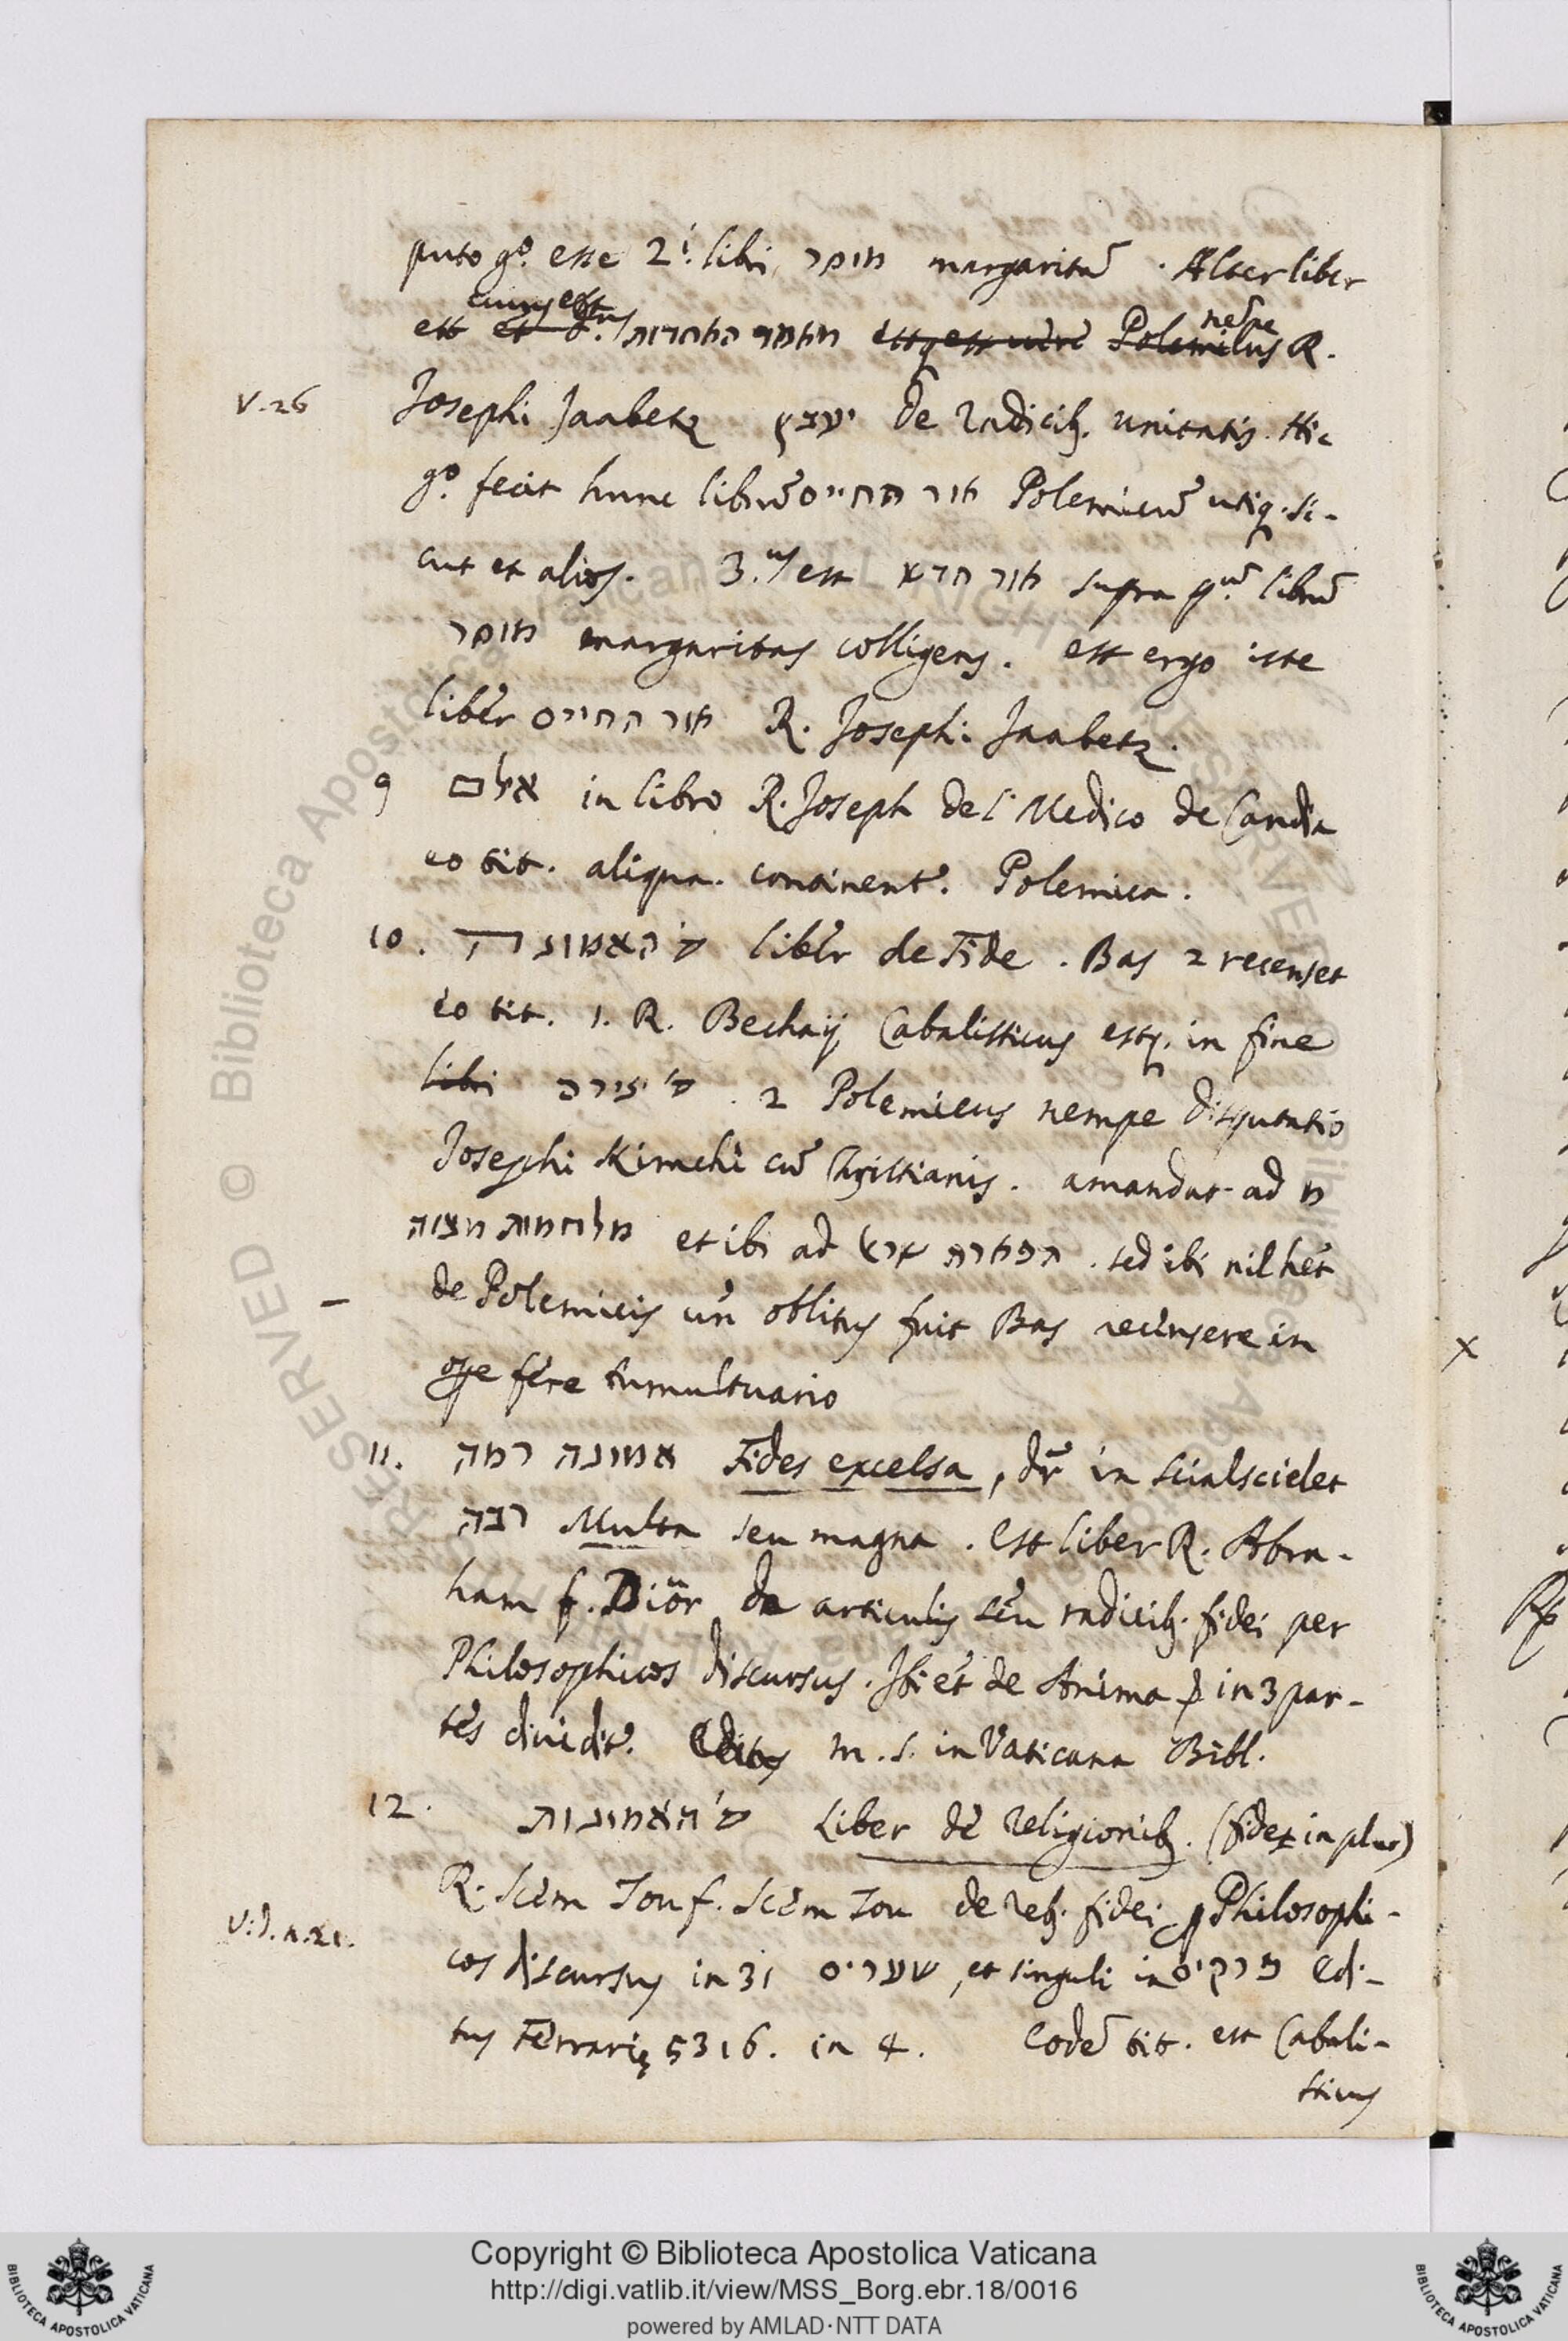 puto gº. esse 2.i libri חופר margaritā. Alter liber
cuius est
est et d. מאמר האחדות est q est nempe
Polemicus R.
V. 26
Josephi Jaabetz יעבץ de radicib. unitatis. Hic
gº. fecit hunc librū אור החיים Polemicū utiq. si-
cut et alios. 3.us est אור חדש supra quē librū
חופר margaritas colligens. est ergo iste
liber אור החיים R. Josephi Jaabetz.
9 אלם in libro R. Joseph del Medico de Candia
eo tit. aliqua. continent. Polemica.
10. ס' האמונה liber de Fide. Bas 2 recenset
eo tit. 1. R. Bechaij Cabalisticus estq. in fine
libri ס' יצירה. 2 Polemicus nempe disputatio
Josephi Kimchi cū Christianis. amandat ad n
מלחמות מצוה et ibi ad . sed ibi nil het
de Polemicis un oblitus fuit Bas recensere in
ope fere tumultuario
11. אמונה רמה Fides excelsa, dr in Scialscielet
רבה Multa seu magna. Est liber R. Abra-
ham f. Dior de articulis seu radicib. fidei per
Philosophicos discursus. Ibi et de Anima in 3 par-
tes dividit. Editus m. s. in Vaticana Bibl.
12. ס' האמונות Liber de religionib. (fides in plur)
V.d. n. 21.
R. Scem Tou f. Scem Tou de reb. fidei p Philosophi-
cos discursus in 31 שערים, et singuli in פרקים Edi-
tus Ferrarię 5316. in 4. Eodē tit. est Cabali-
sticus
Copyright © Biblioteca Apostolica Vaticana
http://digi.vatlib.it/view/MSS_Borg.ebr.18/0016
powered by AMLAD·NTT DATA